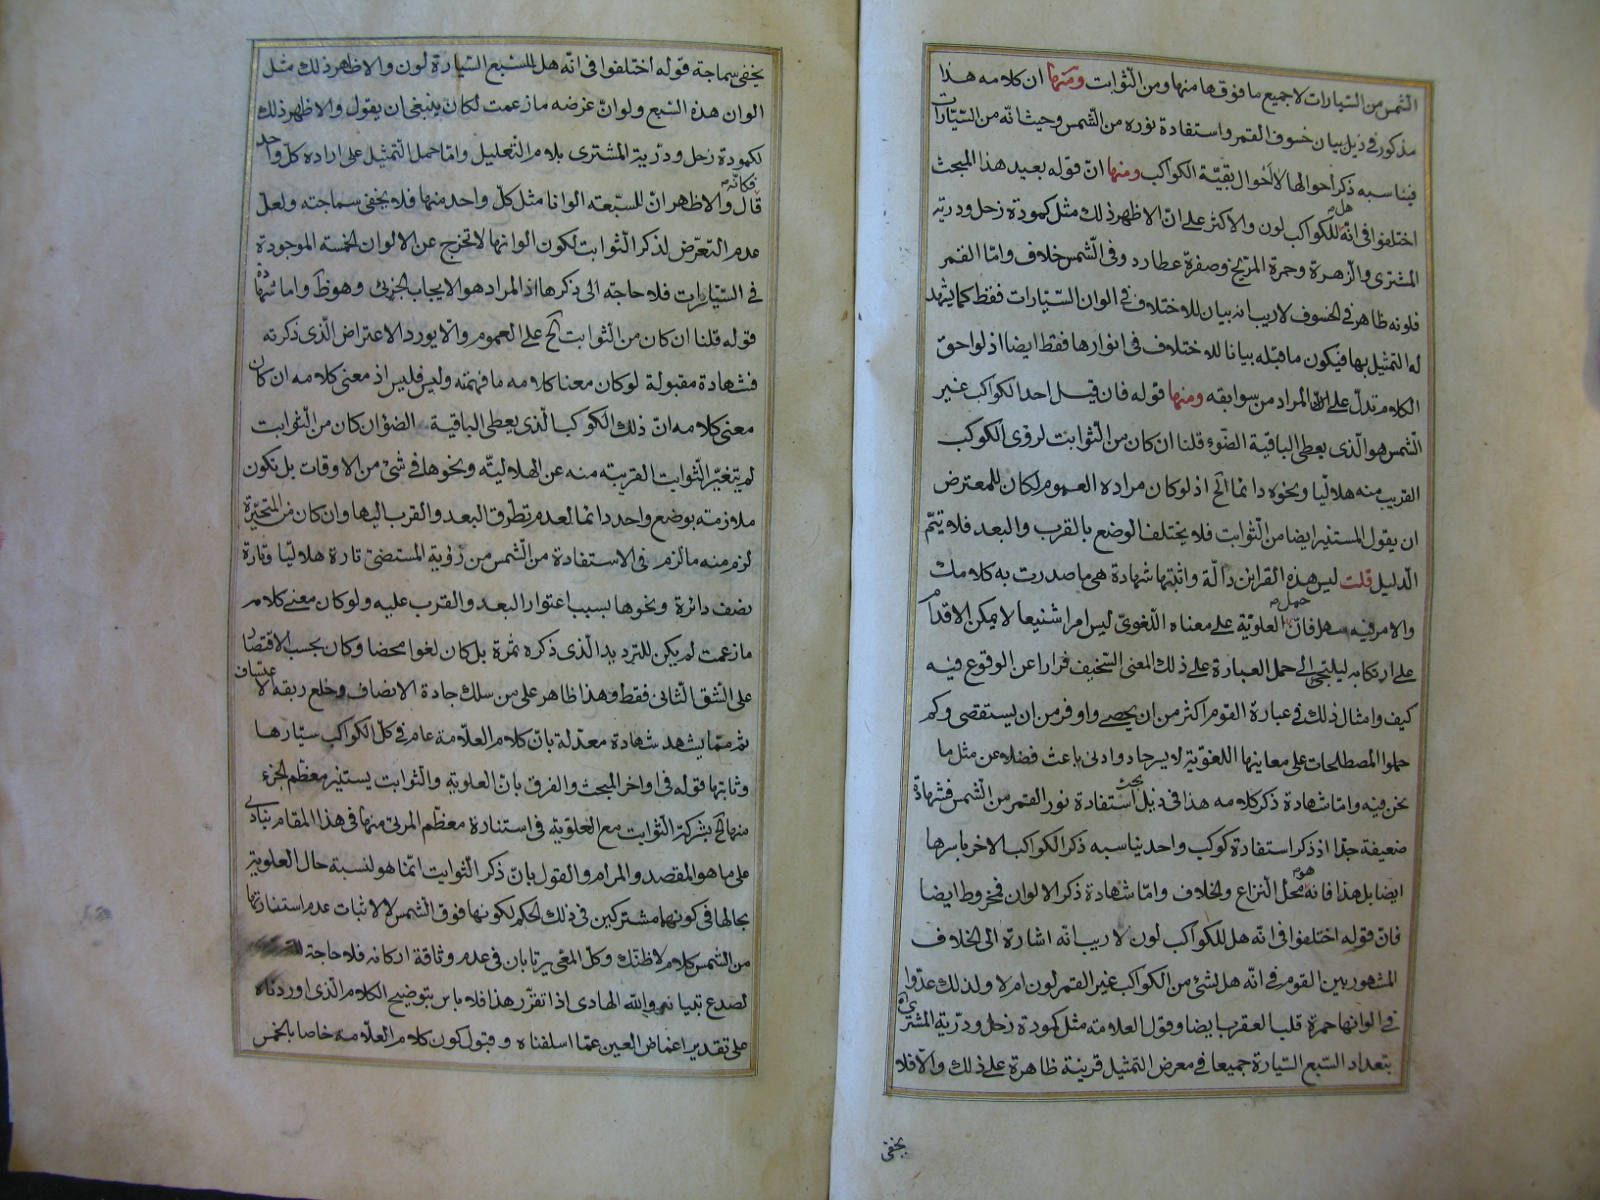 الشمس من السيارات لا جميع ما فوقها منها ومن الثوابت ومنها ان كلامه هذا
مذكور فى ذيل بيان خسوف القمر واستفادة نوره من الشمس وحيث انه من السيارات
فيناسبه ذكر احوالها لا احوال بقية الكواكب ومنها ان قوله بعيد هذا المبحث
اختلفوا فى انه هل للكواكب لون والاكثر على ان الاظهر ذلك مثل كمودة زحل ودرية
المشترى والزهرة وحمرة المريخ وصفرة عطارد وفى الشمس خلاف واما القمر
فلونه ظاهر فى الخسوف لا ريب انه بيان للاختلاف فى الوان السيارات فقط كما يشهد
له التمثيل بها فيكون ما قبله بيانا للاختلاف فى انوارها فقط ايضا اذ لواحق
الكلام تدل على ان المراد من سوابقه ومنها قوله فان قيل احد الكواكب غير
الشمس هو الذى يعطى الباقية الضوء قلنا ان كان من الثوابت لروى الكوكب
القريب منه هلاليا ونحوه دائما الخ اذ لو كان مراده العموم لكان للمعترض
ان يقول المستنير ايضا من الثوابت فلا يختلف الوضع بالقرب والبعد فلا يتم
الدليل قلت ليس هذه القراين دالة واثبتها شهادة هى ما صدرت به كلامك
والامر فيه سهل فان حمل العلوية على معناه اللغوى ليس امرا شنيعا لا يمكن الاقدام
على ارتكابه ليلتجى الى حمل العبارة على ذلك المعنى السخيف فرارا عن الوقوع فيه
كيف وامثال ذلك فى عبارة القوم اكثر من ان يحصى واوفر من ان يستقصى وكم
حملوا المصطلحات على معاينها اللغوية لا يسر جاد وادنى باعث فضلا عن مثل ما
نحن فيه واما شهادة ذكر كلامه هذا فى ذيل بحث استفادة نور القمر من الشمس فشهادة
ضعيفة جدا اذ ذكر استفادة كوكب واحد يناسبه ذكر الكواكب الاخر باسرها
ايضا بل هذا فانه هو محل النزاع والخلاف واما شهادة ذكر الالوان فمخروط ايضا
فان قوله اختلفوا فى انه هل للكواكب لون لا ريب انه اشارة الى الخلاف
المشهور بين القوم فى انه هل لشئ من الكواكب غير القمر لون ام لا ولذلك عدوا
فى الوانها حمرة قلب العقرب ايضا وقول العلامة مثل كمودة زحل ودرية المشترى اه
بتعداد السبع السيارة جميعا فى معرض التمثيل قرينة ظاهرة على ذلك والا فلا
يخفى
يخفى سماجة قوله اختلفوا فى انه هل للسبع السيارة لون والاظهر ذلك مثل
الوان هذه السبع ولو ان غرضه ما زعمت لكان ينبغى ان يقول والاظهر ذلك
لكمودة زحل ودرية المشترى بلام التعليل واما حمل التمثيل على ارادة كل واحد
فكانه قال والاظهر ان للسبعة الوانا مثل كل واحد منها فلا يخفى سماجته ولعل
عدم التعرض لذكر الثوابت لكون الوانها لا تخرج عن الالوان الخمسة الموجودة
فى السيارات فلا حاجة الى ذكرها اذ المراد هو الايجاب الجزئى وهو ظ واما شهادة
قوله قلنا ان كان من الثوابت الخ على العموم والا يورد الاعتراض الذى ذكرته
فشهادة مقبولة لو كان معنا كلامه ما فهمته وليس فليس اذ معنى كلامه ان كان
معنى كلامه ان ذلك الكوكب الذى يعطى الباقية الضؤ ان كان من الثوابت
لم يتغير الثوابت القريبة منه عن الهلالية ونحوها فى شئ من الاوقات بل يكون
ملازمته بوضع واحد دائما لعدم تطرق البعد والقرب اليها وان كان من المتحيرة
لزم منه ما لزم فى الاستفادة من الشمس من رؤية المستضئ تارة هلاليا وتارة
نصف دائرة ونحوها بسبب اعتوار البعد والقرب عليه ولو كان معنى كلامه
ما زعمت لم يكن للترديد الذى ذكره ثمرة بل كان لغوا محضا وكان يجب الاقتصار
على الشق الثانى فقط وهذا ظاهر على من سلك جادة الانصاف وخلع ربقة الاعتساف
ثم مما يشهد شهادة معدلة بان كلام العلامة عام فى كل الكواكب سيارها
وثابتها قوله فى اواخر المبحث والفرق بان العلوية والثوابت يستنير معظم الجزء
منها الخ بشركة الثوابت مع العلوية فى استنارة معظم المرئى منها فى هذا المقام ينادى
على ما هو المقصد والمرام والقول بان ذكر الثوابت انما هو لنسبة حال العلوية
بحالها فى كونها مشتركين فى ذلك الحكم لكونها فوق الشمس لا لاثبات عدم استفادتها
من الشمس كلام لا ظنك وكل المعى يرتابان فى عدم وثاقة اركانه فلا حاجة
لصدع بنيانه والله الهادى اذا تقرر هذا فلا باس بتوضيح الكلام الذى اوردناه
على تقدير اغماض العين عما اسلفناه وقبول كون كلام العلامة خاصا بالخمس